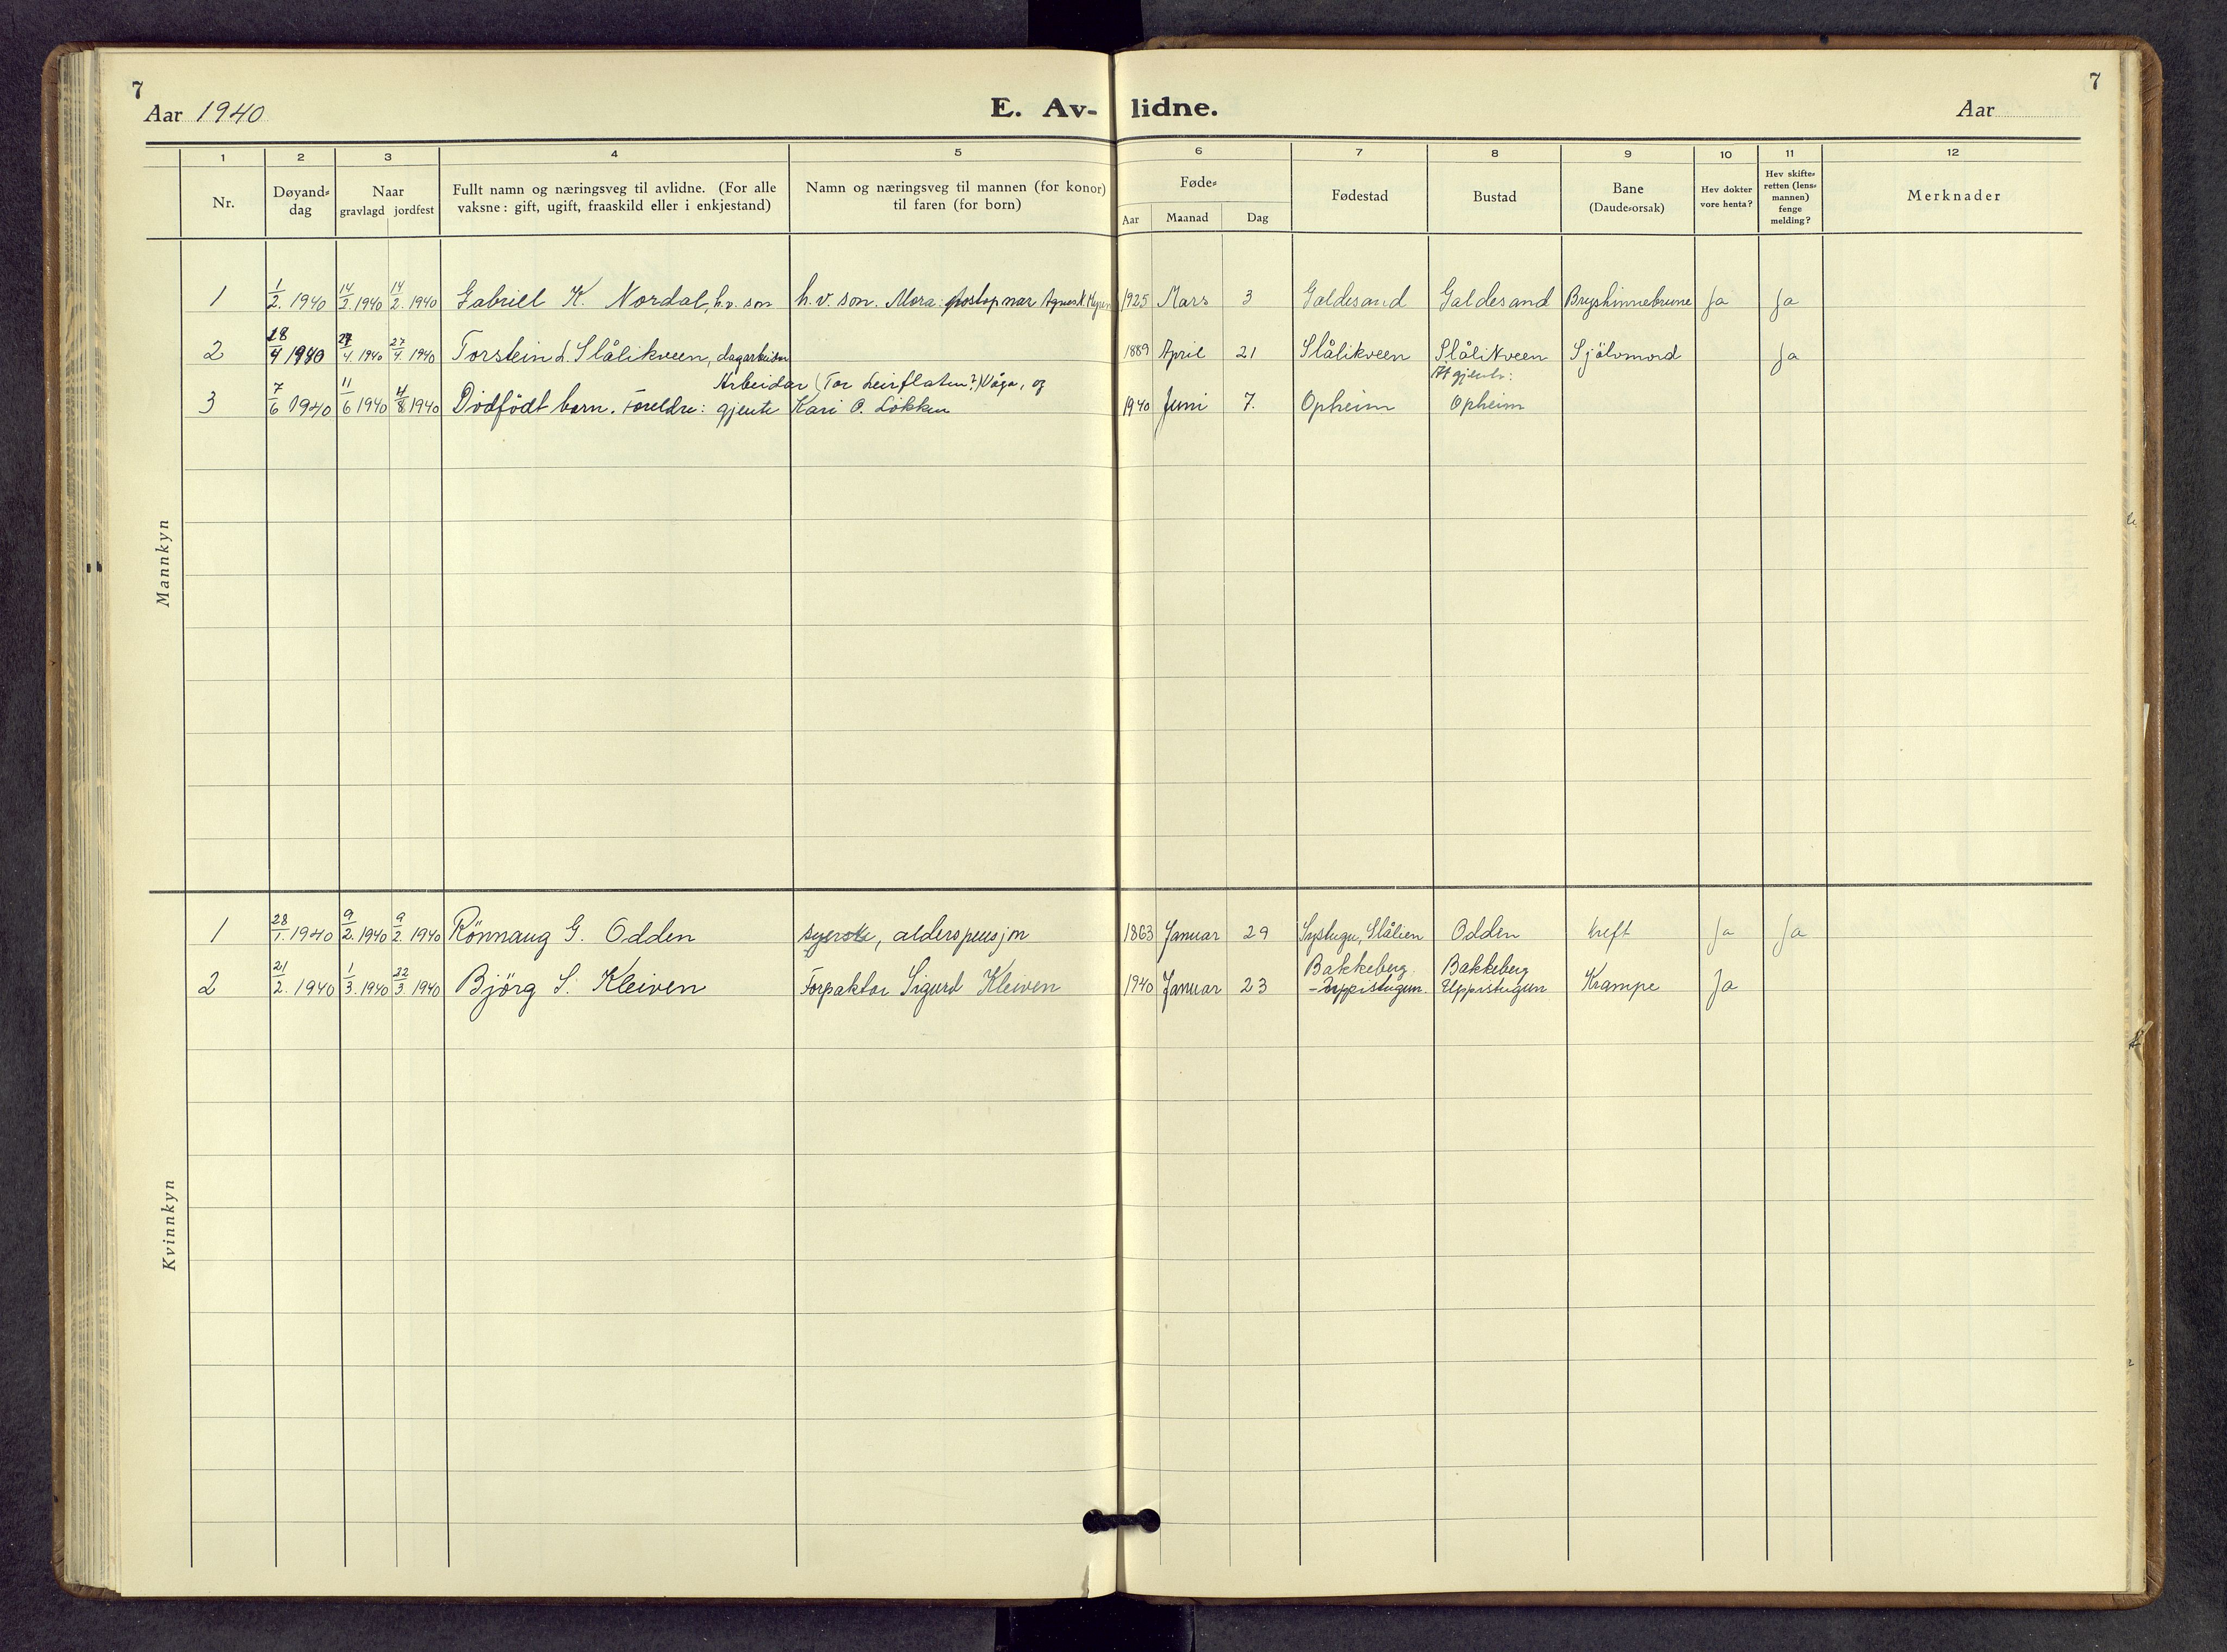 7
7
Aar 1940
E. Av-lidne.
Aar
1 2 3 4 5 6 7 8 9 10 11 12
Nr.
Døyand-dag
Naar gravlagd jordfest
Fullt namn og næringsveg til avlidne. (For alle vaksne: gift, ugift, fraaskild eller i enkjestand)
Namn og næringsveg til mannen (for konor) til faren (for born)
Føde- Aar Maanad Dag
Fødestad
Bustad
Bane (Daude-orsak)
Hev dokter vore henta?
Hev skifte-retten (lens-mannen) fenge melding?
Merknader
Mannkyn
1 1/2. 1940 14/2 1940 14/2. 1940 Gabriel K. Nordal, h.v. son h.v. son. Mora: postopnar Agnes K. 1925 Mars 3 Galdesand Galdesand Bryshinnebrune Ja Ja
2 18/4 1940 27/4. 1940 27/4. 1940 Torstein L. Slålikveen, dagarbeidar 1889 April 21 Slålikveen Slålikveen Sjölvmord Ja
Arbeidar (Tor Leirflaten?) Våga, og
3 7/6 1940 11/6 1940 4/8 1940 Dödfödt barn. Foreldre: gjente Kari O. Lökken 1940 Juni 7. Opheim Opheim
Kvinnkyn
1 28/1. 1940 9/2. 1940 9/2. 1940 Rönnaug G. Odden syerske, alderspensjon 1863 Januar 29 Systugu, Slålien Odden kreft Ja Ja
Bakkeberg. Bakkeberg
2 21/2. 1940 1/3. 1940 22/3. 1940 Björg S. Kleiven Forpaktar Sigurd Kleiven 1940 Januar 23 -Uppistugun. Uppistugun Krampe Ja